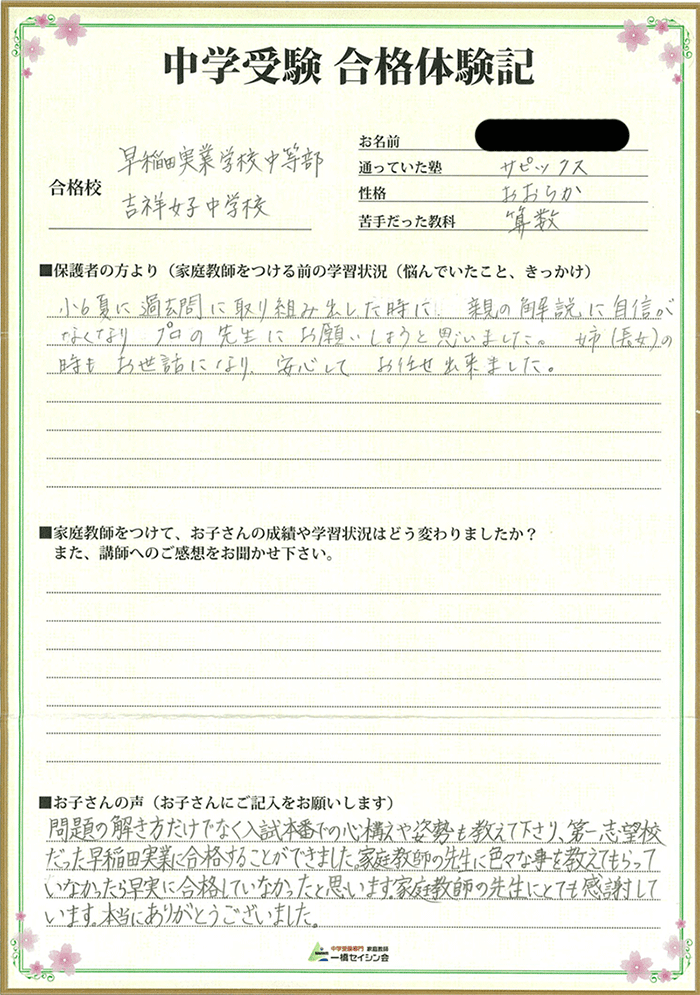 中学受験 合格体験記
合格校
早稲田実業学校中等部
吉祥女子中学校
お名前
通っていた塾 サピックス
性格 おおらか
苦手だった教科 算数
■保護者の方より（家庭教師をつける前の学習状況（悩んでいたこと、きっかけ）
小6夏に過去問に取り組み出した時に、親の解説に自信が
なくなり プロの先生にお願いしようと思いました。姉(長女)の
時も お世話になり、安心して お任せ出来ました。
■家庭教師をつけて、お子さんの成績や学習状況はどう変わりましたか？
また、講師へのご感想をお聞かせ下さい。
■お子さんの声（お子さんにご記入をお願いします）
問題の解き方だけでなく入試本番での心構えや姿勢も教えて下さり、第一志望校
だった早稲田実業に合格することができました。家庭教師の先生に色々な事を教えてもらって
いなかったら早実に合格していなかったと思います。家庭教師の先生にとても感謝して
います。本当にありがとうございました。
中学受験専門 家庭教師
一橋セイシン会